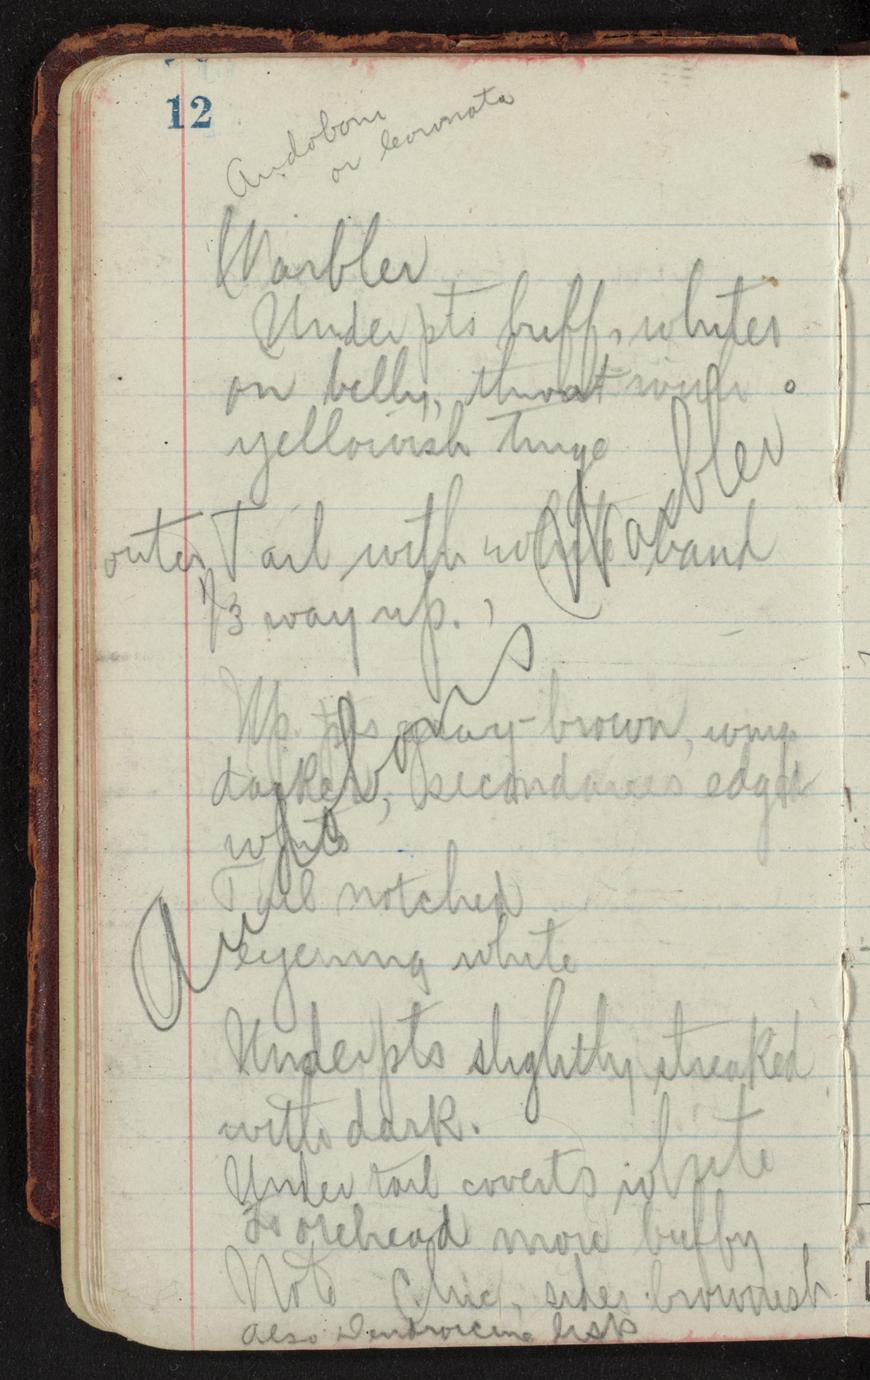 12
Audoboni
or coronata
Warbler
Underpts buff, whiter
on belly, throat with
yellowish tinge
outer Tail with white band
1/3 way up.
Audubons Warbler
Up. pts gray-brown, wings
darker, secondaries edged
white
Tail notched
eyering white
Underpts slightly streaked
with dark.
Under tail coverts white
Forehead more buffy
Note sides brownish
also Dendroicine lisp